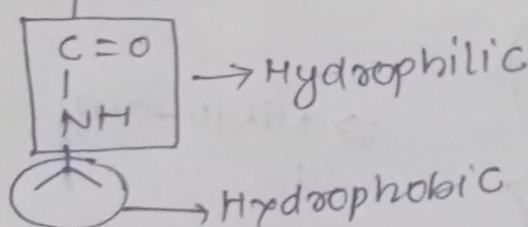 C=O
→ Hydrophilic
NH
→ Hydrophobic